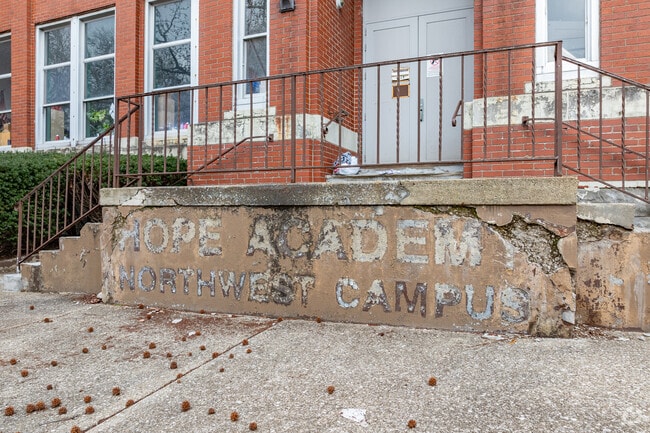 HOPE ACADEM
NORTHWEST CAMPUS